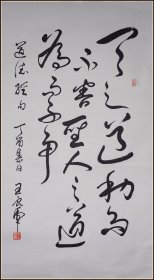 天之道利而
不害聖人之道
為而不争
道德經句 丁酉春日 王